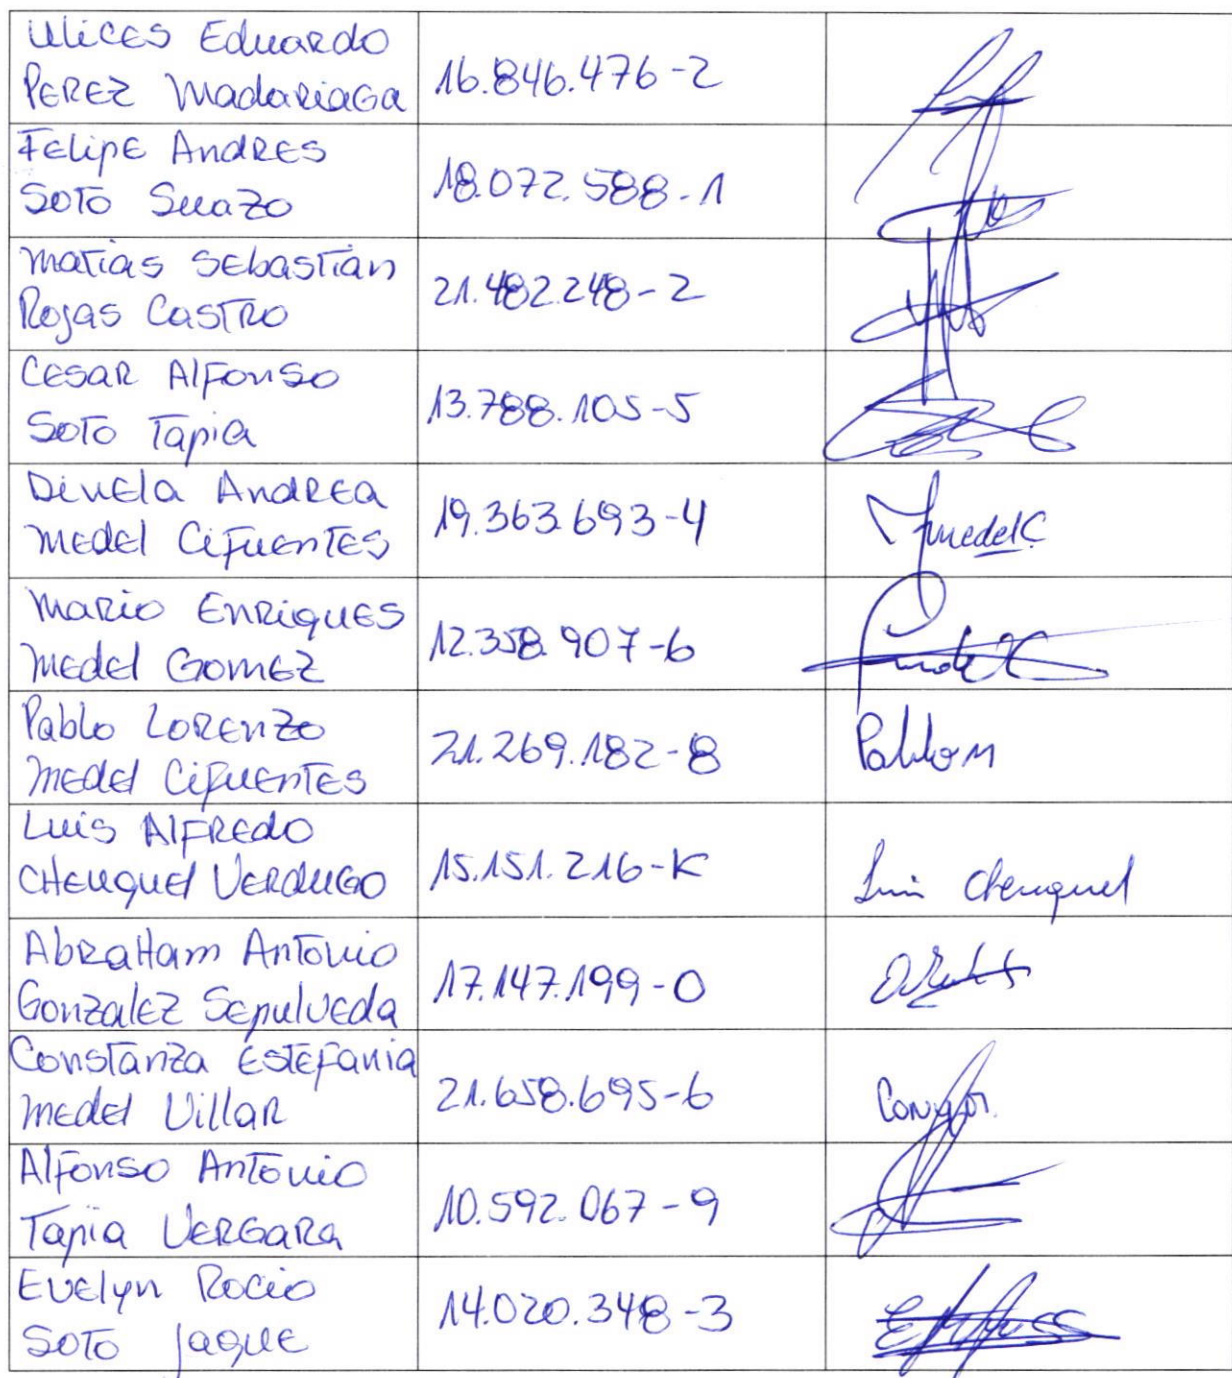 Ulices Eduardo
PEREZ Madariaga
16.846.476-2
Felipe Andres
Soto Suazo
18.072.588-1
Matias Sebastian
Rojas Castro
21.482.248-2
Cesar Alfonso
Soto Tapia
13.788.105-5
Divela Andrea
Medel Cifuentes
19.363.693-4
JmedelC
Mario Enriques
Medel Gomez
12.358.907-6
Pablo Lorenzo
Medel Cifuentes
21.269.182-8
Pablo M
Luis Alfredo
Cheuquel Verdugo
15.151.216-K
Luis Cheuquel
Abraham Antonio
Gonzalez Sepulveda
17.147.199-0
Constanza Estefania
Medel Villar
21.658.695-6
Alfonso Antonio
Tapia Vergara
10.592.067-9
Evelyn Rocio
Soto Jaque
14.020.348-3